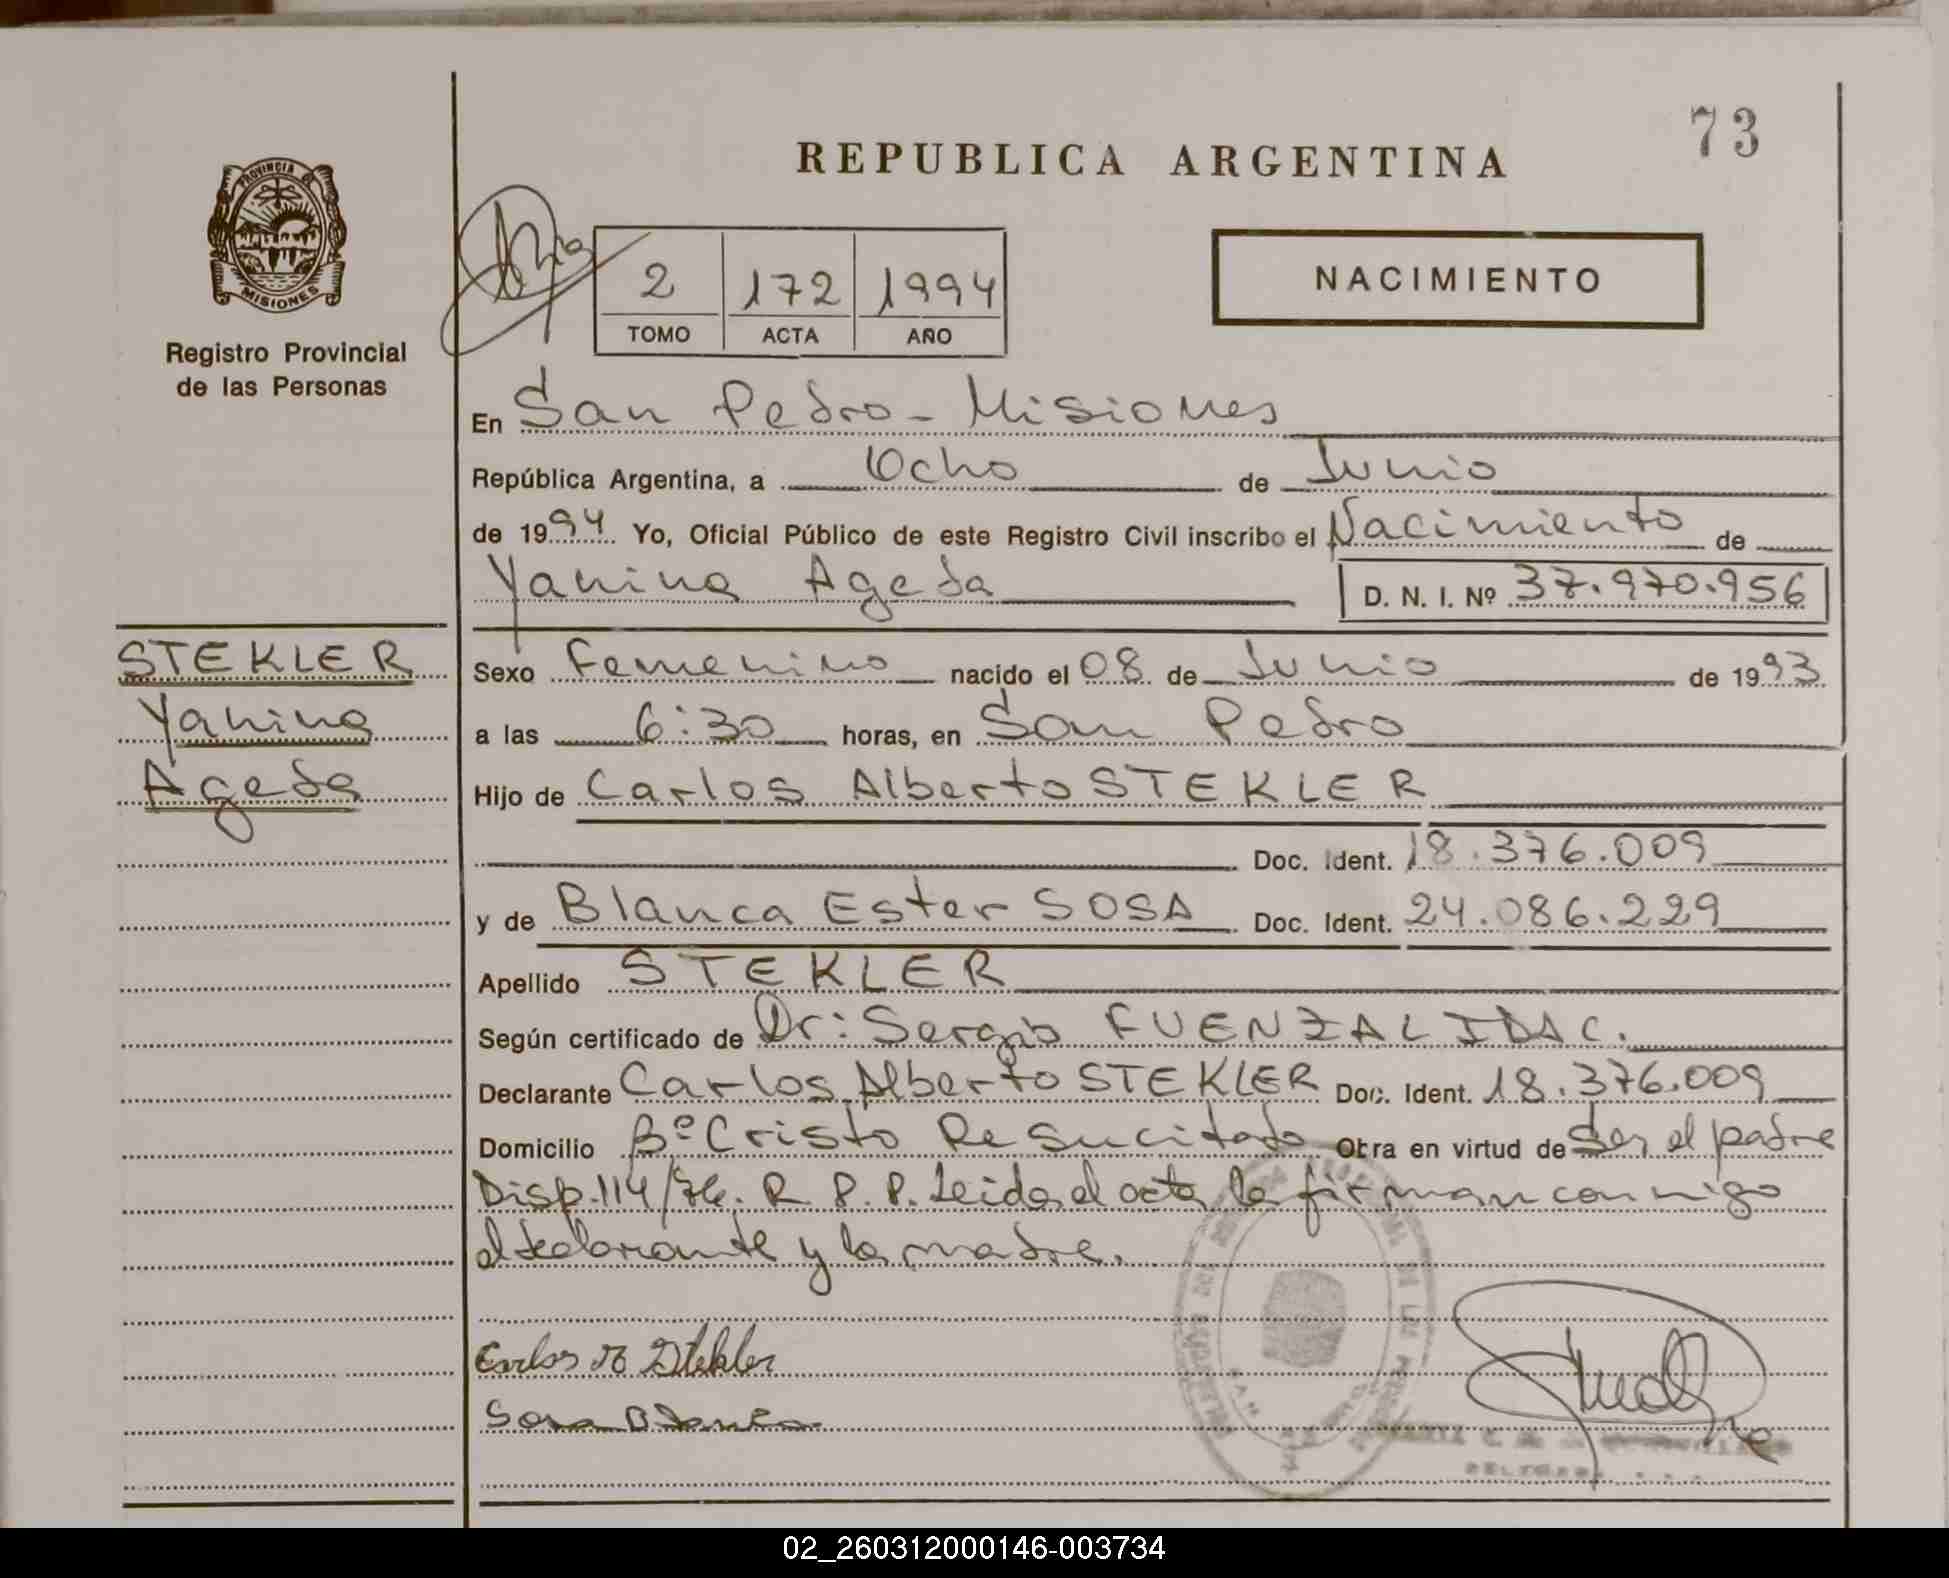 73
REPUBLICA ARGENTINA
PROVINCIA
MISIONES
Registro Provincial
de las Personas
2 172 1994
TOMO ACTA AÑO
NACIMIENTO
En San Pedro - Misiones
República Argentina, a Ocho de Junio
de 1994 Yo, Oficial Público de este Registro Civil inscribo el Nacimiento de
Yanina Ageda D. N. I. Nº 37.970.956
STEKLER
Yanina
Ageda
Sexo Femenino nacido el 08 de Junio de 1993
a las 6:30 horas, en San Pedro
Hijo de Carlos Alberto STEKLER
Doc. Ident. 18.376.009
y de Blanca Ester SOSA Doc. Ident. 24.086.229
Apellido STEKLER
Según certificado de Dr: Sergio FUENZALIDA C.
Declarante Carlos Alberto STEKLER Doc. Ident. 18.376.009
Domicilio Bº Cristo Resucitado Obra en virtud de Ser el padre
Disp. 114/76. R. P. P. Leida el acta la firman conmigo
el declarante y la madre.
Carlos A Stekler
Sosa Blanca
02_260312000146-003734